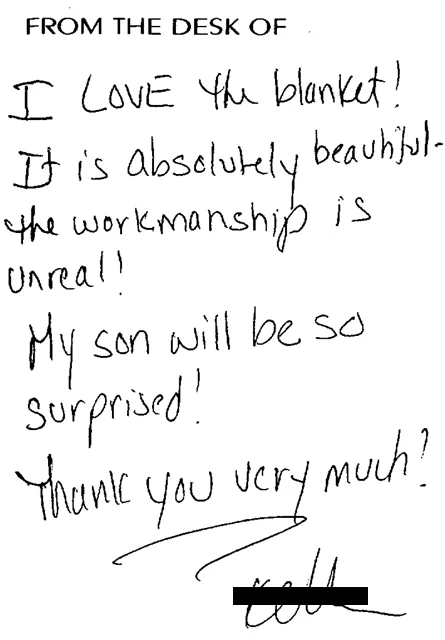 FROM THE DESK OF
I LOVE the blanket!
It is absolutely beautiful-
the workmanship is
unreal!
My son will be so
surprised!
Thank you very much!